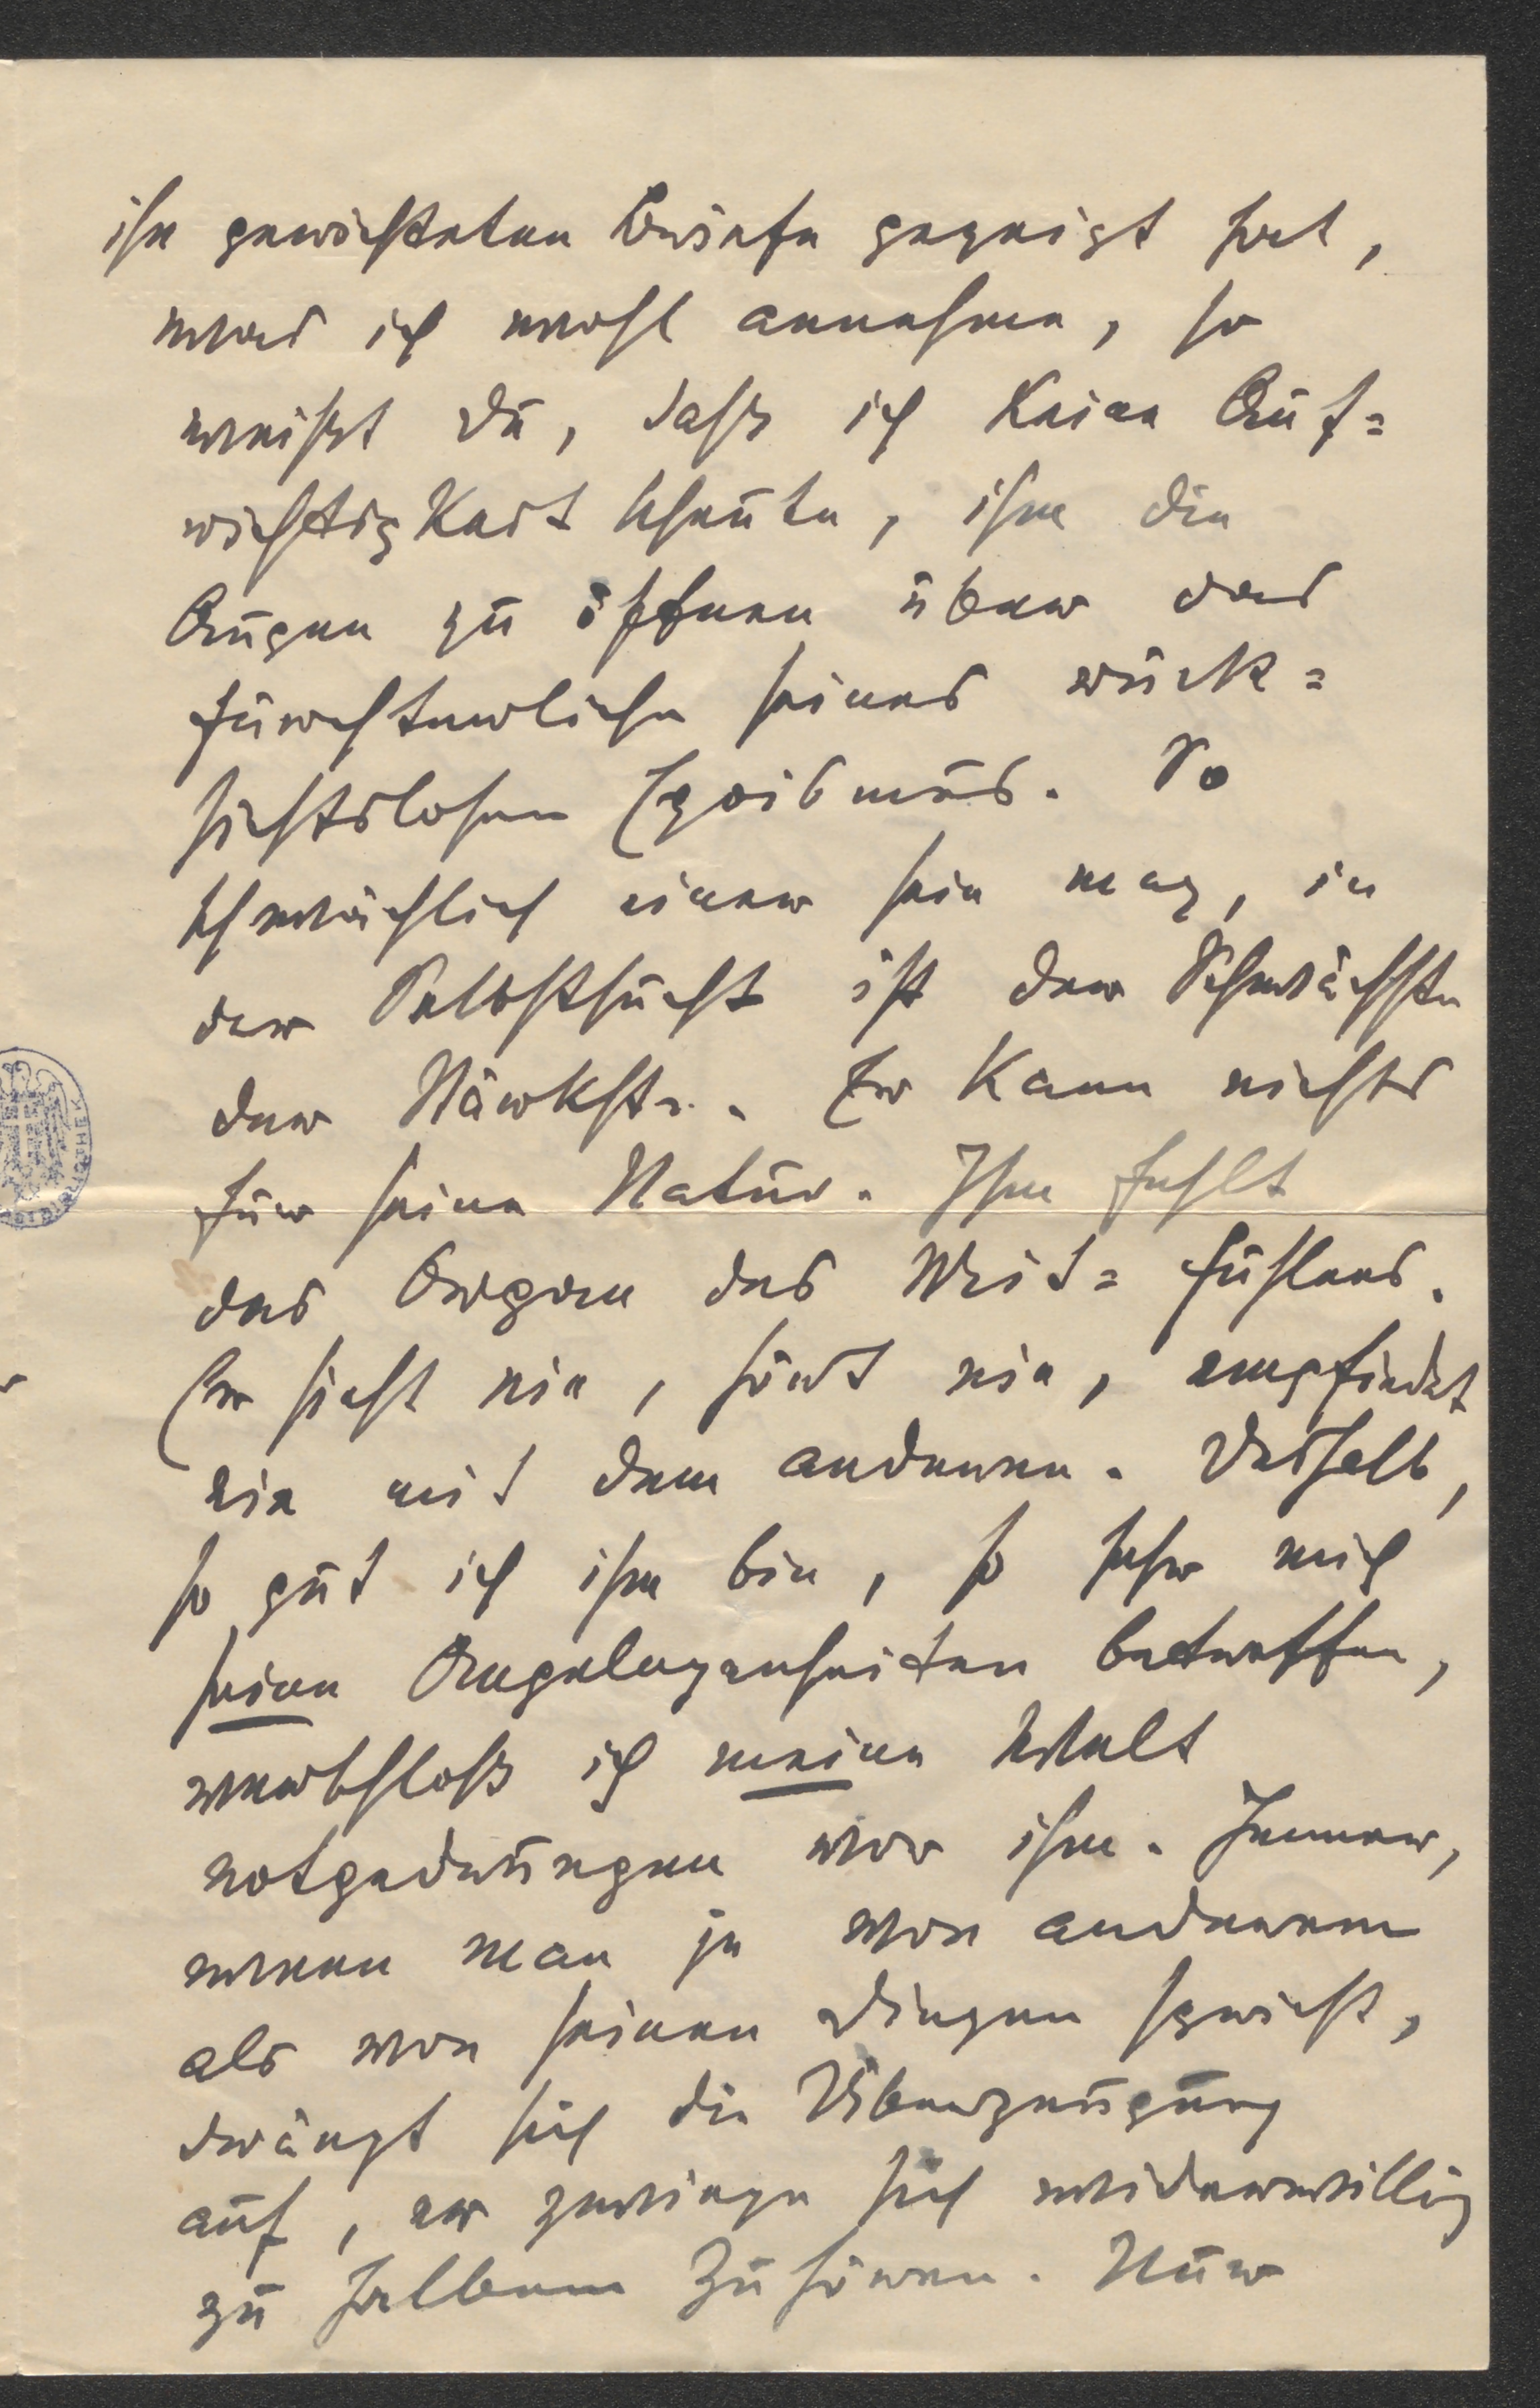 ihn gerichteten Briefe gezeigt hat,
was ich wohl annehme, so
weißt Du, dass ich keine Auf=
richtigkeit scheute, ihm die
Augen zu öffnen über das
fürchterliche seines rück=
sichtslosen Egoismus. So
schwächlich einer sein mag, in
der Selbstsucht ist der Schwächste
der Stärkste. Er kann nichts
für seine Natur. Ihm fehlt
das Organ des Mit=fühlens.
Er sieht nie, hört nie, empfindet
nie mit dem anderen. Deshalb,
so gut ich ihm bin, so sehr mich
seine Angelegenheiten betreffen,
verschloß ich meine Welt
notgedrungen vor ihm. Immer,
wenn man je von anderem
als von seinen Dingen spricht,
drängt sich die Überzeugung
auf, er zwinge sich widerwillig
zu halbem Zuhören. Nur